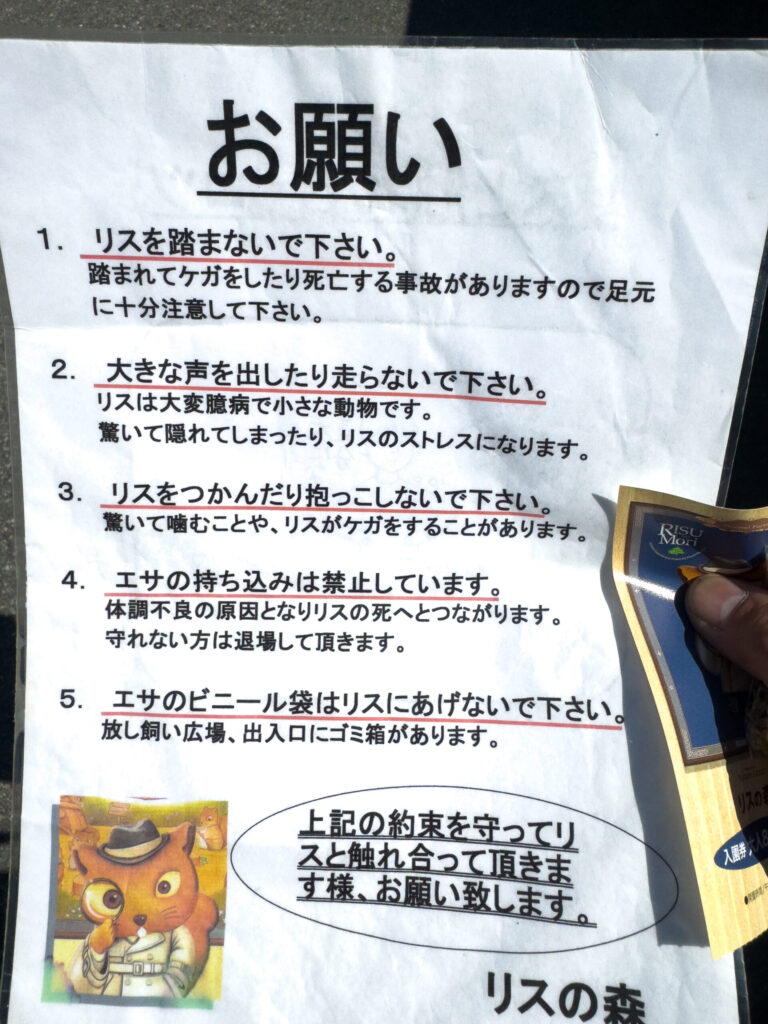 お願い
1. リスを踏まないで下さい。
踏まれてケガをしたり死亡する事故がありますので足元
に十分注意して下さい。
2. 大きな声を出したり走らないで下さい。
リスは大変臆病で小さな動物です。
驚いて隠れてしまったり、リスのストレスになります。
3. リスをつかんだり抱っこしないで下さい。
驚いて噛むことや、リスがケガをすることがあります。
4. エサの持ち込みは禁止しています。
体調不良の原因となりリスの死へとつながります。
守れない方は退場して頂きます。
5. エサのビニール袋はリスにあげないで下さい。
放し飼い広場、出入口にゴミ箱があります。
上記の約束を守ってリ
スと触れ合って頂きま
す様、お願い致します。
リスの森
RISU
Mori
リスの森
入園券 大人